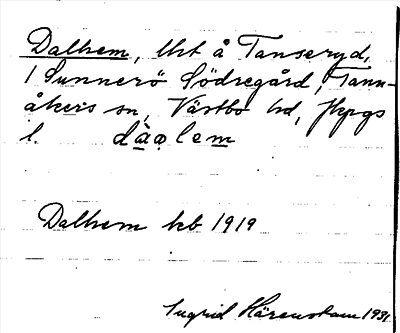 Dalhem, lht å Tanseryd,
1 Sunnerö Södregård, Tann-
åkers sn, Västbo hd, Jkpgs
l. dàꞷlem
Dalhem kb 1919
Ingrid Härenstam 1931